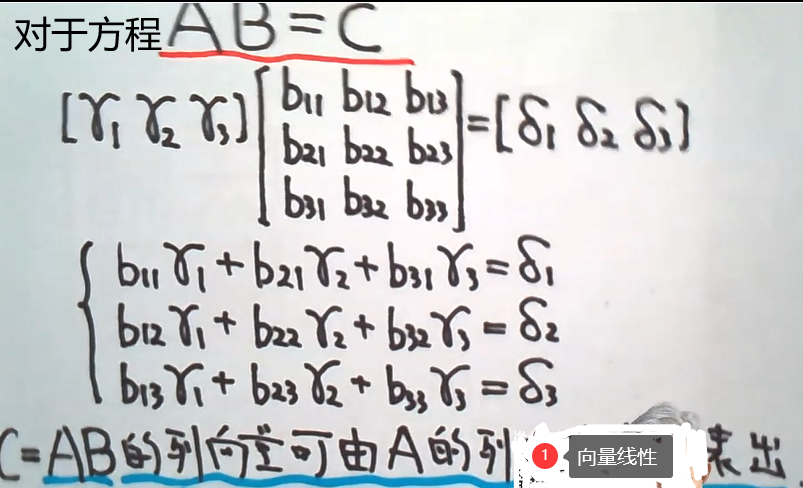 对于方程AB=C
[γ₁ γ₂ γ₃][b₁₁ b₁₂ b₁₃
b₂₁ b₂₂ b₂₃
b₃₁ b₃₂ b₃₃]=[δ₁ δ₂ δ₃]
b₁₁γ₁+b₂₁γ₂+b₃₁γ₃=δ₁
b₁₂γ₁+b₂₂γ₂+b₃₂γ₃=δ₂
b₁₃γ₁+b₂₃γ₂+b₃₃γ₃=δ₃
C=AB的列向量可由A的列 1 向量线性 表出